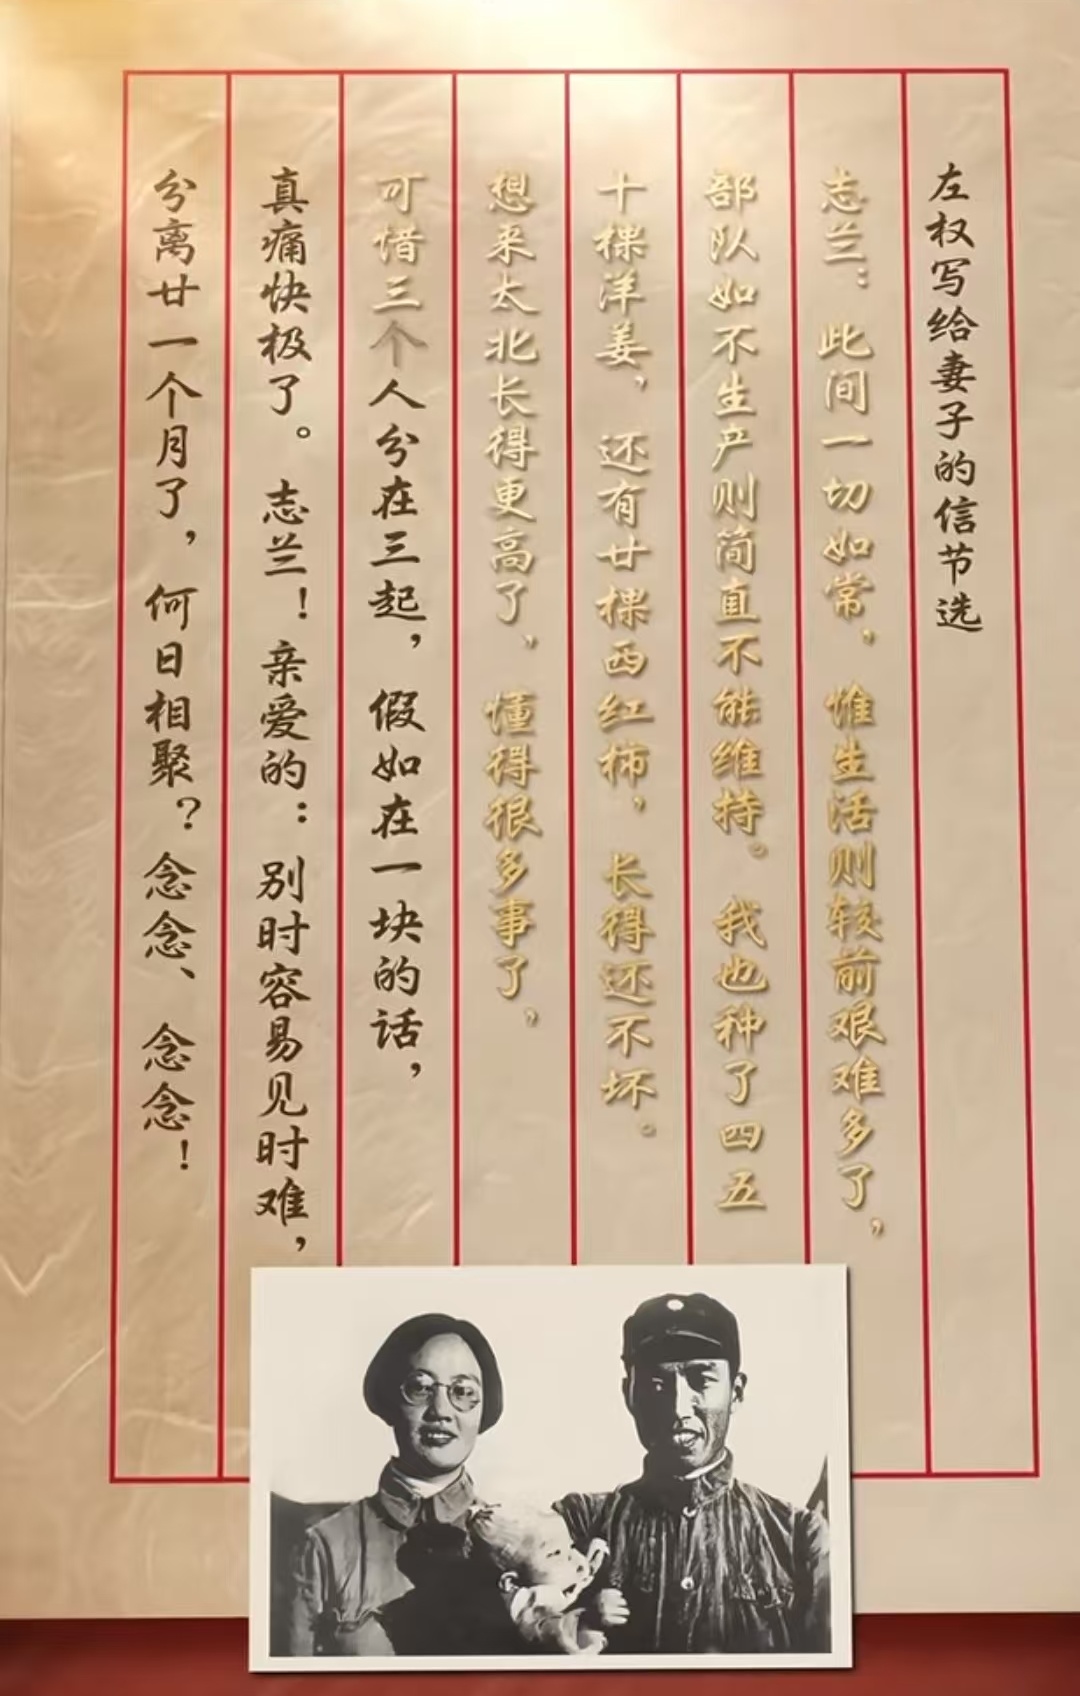 左权写给妻子的信节选
志兰：此间一切如常，惟生活则较前艰难多了，
部队如不生产则简直不能维持。我也种了四五
十棵洋姜，还有廿棵西红柿，长得还不坏。
想来太北长得更高了，懂得很多事了，
可惜三个人分在三起，假如在一块的话，
真痛快极了。志兰！亲爱的：别时容易见时难，
分离廿一个月了，何日相聚？念念、念念！